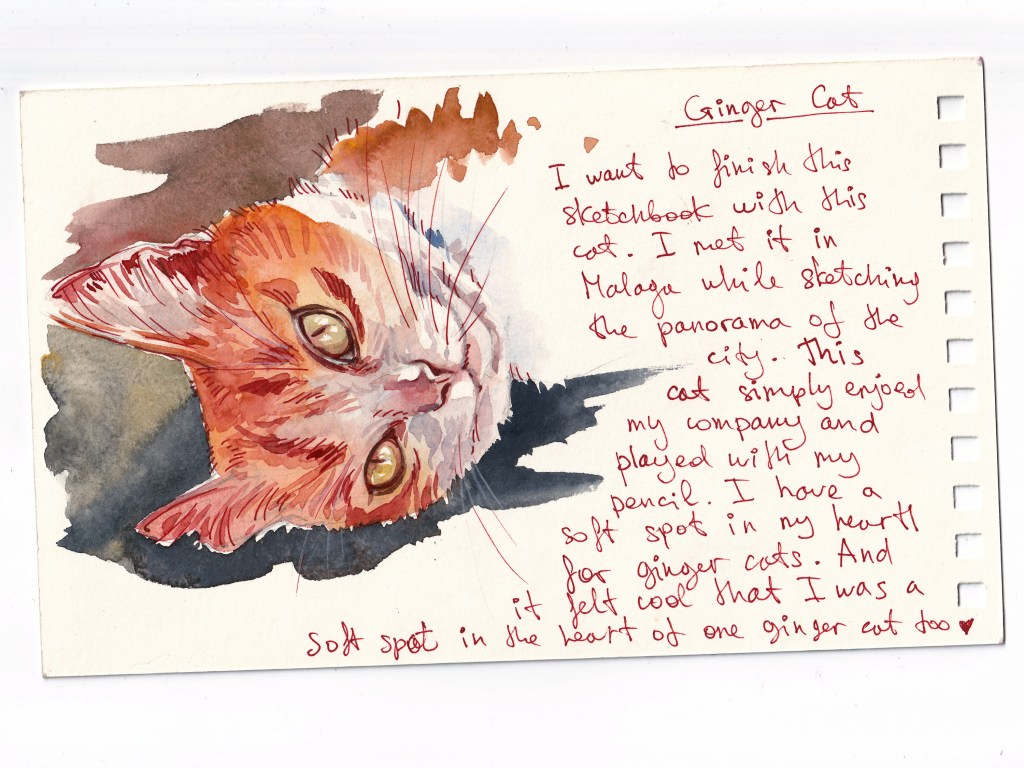 Ginger Cat
I want to finish this
sketchbook with this
cat. I met it in
Malaga while sketching
the panorama of the
city. This
cat simply enjoed
my company and
played with my
pencil. I have a
soft spot in my heart
for ginger cats. And
it felt cool that I was a
soft spot in the heart of one ginger cat too ♥